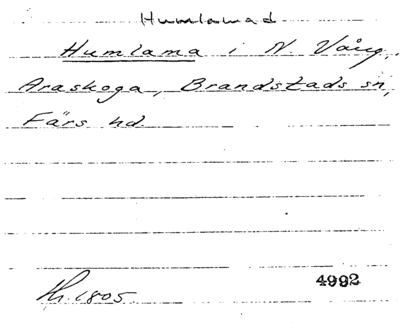 Humlamad
Humlama i N Vång,
Araskoga, Brandstads sn,
Färs hd
Kh. 1805 4992